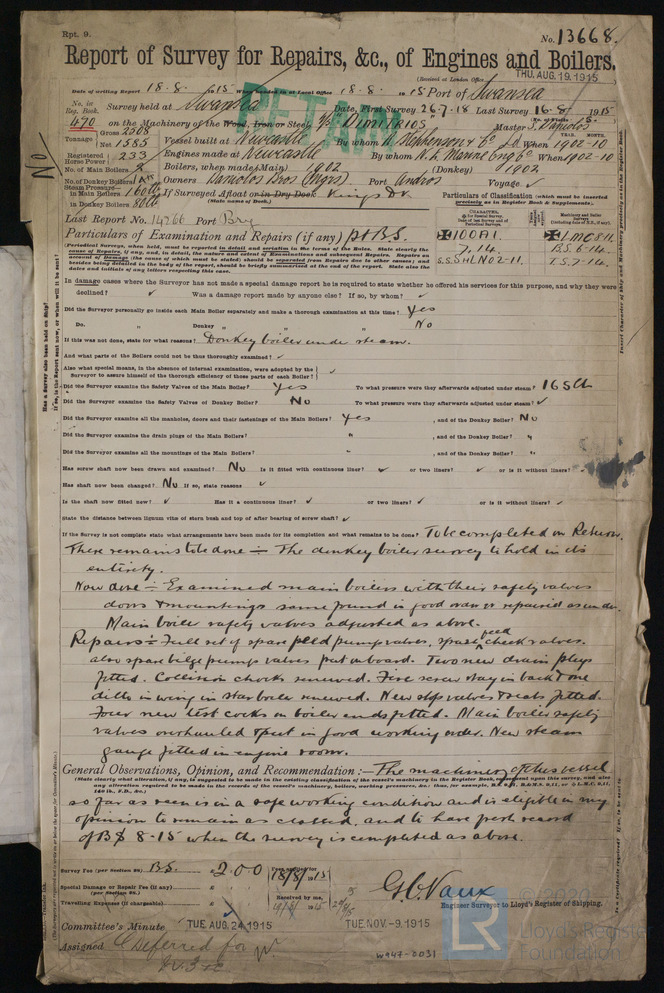 Rpt. 9.
No. 13668.
Report of Survey for Repairs, &c., of Engines and Boilers.
(Received at London Office THU. AUG. 19. 1915
Date of writing Report 18.8.1915 When handed in at Local Office 18.8.1915 Port of Swansea
No. in Reg. Book. Survey held at Swansea Date, First Survey 26.7.15 Last Survey 16.8.1915
470 on the Machinery of the Wood, Iron or Steel
Master
Tonnage Gross 2508 Net 1585 Vessel built at Newcastle By whom When 1902-10
Registered Horse Power 233 Engines made at Newcastle By whom When 1902-10
No. of Main Boilers 2 Boilers, when made (Main) 1902 (Donkey) 1902
No. of Donkey Boilers Owners Port Andros Voyage ✓
Steam Pressure in Main Boilers 160 lb If Surveyed Afloat or in Dry Dock Kings Dk
in Donkey Boilers 80 lb (State name of Dock.)
Particulars of Classification (which must be inserted precisely as in Register Book & Supplements).
DETAIN
Last Report No. 14766 Port Bry
Particulars of Examination and Repairs (if any) pt BS
✠100A1 ✠LMC 8.11
7.14 BS 8.14
S.S. No 2-11. T.S. 7-14.
(Periodical Surveys, when held, must be reported in detail and seriatim in the terms of the Rules. State clearly the cause of Repairs, if any, and, in detail, the nature and extent of Examinations and subsequent Repairs. Repairs on account of Damage (the cause of which must be stated) should be separated from Repairs due to other causes; and besides being detailed in the body of the report, should be briefly summarised at the end of the report. State also the dates and initials of any letters respecting this case.
In damage cases where the Surveyor has not made a special damage report he is required to state whether he offered his services for this purpose, and why they were
declined? ✓ Was a damage report made by anyone else? If so, by whom? ✓
Did the Surveyor personally go inside each Main Boiler separately and make a thorough examination at this time? Yes
Do. " Donkey " " " No
If this was not done, state for what reasons? Donkey boiler under steam.
And what parts of the Boilers could not be thoroughly examined? ✓
Also what special means, in the absence of internal examination, were adopted by the Surveyor to assure himself of the thorough efficiency of those parts of each Boiler? ✓
Did the Surveyor examine the Safety Valves of the Main Boiler? Yes To what pressure were they afterwards adjusted under steam? 165 lb
Did the Surveyor examine the Safety Valves of Donkey Boiler? No To what pressure were they afterwards adjusted under steam? ✓
Did the Surveyor examine all the manholes, doors and their fastenings of the Main Boilers? Yes , and of the Donkey Boiler? No
Did the Surveyor examine the drain plugs of the Main Boilers? " , and of the Donkey Boiler? "
Did the Surveyor examine all the mountings of the Main Boilers? " , and of the Donkey Boiler? "
Has screw shaft now been drawn and examined? No Is it fitted with continuous liner? ✓ or two liners? ✓ or is it without liners? ✓
Has shaft now been changed? No If so, state reasons ✓
Is the shaft now fitted new? ✓ Has it a continuous liner? ✓ or two liners? ✓ or is it without liners? ✓
State the distance between lignum vitæ of stern bush and top of after bearing of screw shaft? ✓
If the Survey is not complete state what arrangements have been made for its completion and what remains to be done? To be completed on Return.
There remains to be done – The donkey boiler survey to hold in its
entirety.
Now done – Examined main boilers with their safety valves
doors & mountings same found in good order or repaired as under.
Main boiler safety valves adjusted as above.
Repairs – Full set of spare feed pump valves, spare feed check valves.
also spare bilge pump valves put onboard. Two new drain plugs
fitted. Collision chocks renewed. Five screw stays in back & one
ditto in wing in star boiler renewed. New stop valves & seats fitted.
Four new test cocks on boiler ends fitted. Main boiler safety
valves overhauled & put in good working order. New steam
gauge fitted in engine room.
General Observations, Opinion, and Recommendation:— The machinery of this vessel
so far as seen is in a safe working condition and is eligible in my
opinion to remain as classed, and to have fresh record
of BS 8-15 when the survey is completed as above.
Survey Fee (per Section 28) BS. £ 2.0.0
Special Damage or Repair Fee (if any) (per Section 28.) £
Travelling Expenses (if chargeable) £
18/8/1915
Received by me,
G.C. Vaux
Engineer Surveyor to Lloyd's Register of Shipping.
Committee's Minute TUE. AUG. 24 1915 TUE. NOV. -9. 1915
Assigned Deferred for
W947-0031
© 2020
LR
Lloyd's Register
Foundation